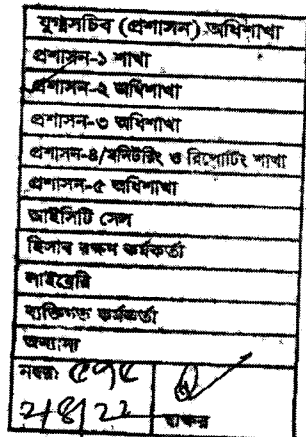 যুগ্মসচিব (প্রশাসন) অধিশাখা
প্রশাসন-১ শাখা
প্রশাসন-২ অধিশাখা
প্রশাসন-৩ অধিশাখা
প্রশাসন-৪/মনিটরিং ও রিপোর্টিং শাখা
প্রশাসন-৫ অধিশাখা
আইসিটি সেল
হিসাব রক্ষণ কর্মকর্তা
লাইব্রেরি
ব্যক্তিগত কর্মকর্তা
অন্যান্য
নম্বর: ৫৭৫
২/৪/২২ স্বাক্ষর